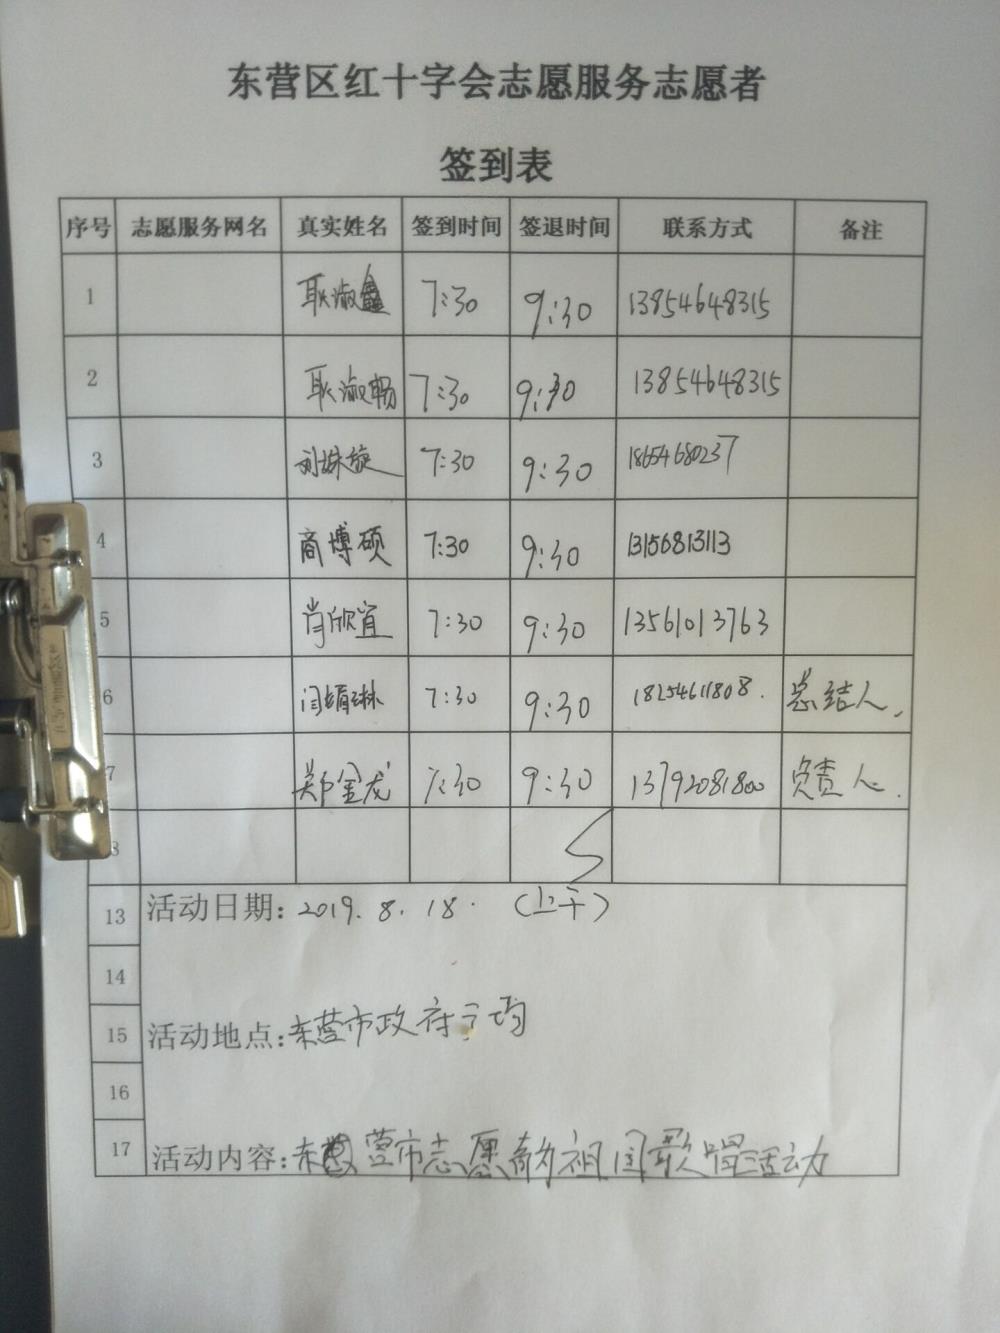 东营区红十字会志愿服务志愿者
签到表
序号 志愿服务网名 真实姓名 签到时间 签退时间 联系方式 备注
1 耿淑鑫 7:30 9:30 13854648315
2 耿淑畅 7:30 9:30 13854648315
3 刘姝旋 7:30 9:30 18654680237
4 商博硕 7:30 9:30 13156813113
5 肖欣宜 7:30 9:30 13561013763
6 闫娟琳 7:30 9:30 18254611808. 总结人.
7 郑金龙 7:30 9:30 13792081800 负责人.
8
13 活动日期: 2019.8.18. (上午)
14
15 活动地点: 东营市政府广场
16
17 活动内容: 东营市志愿者为祖国歌唱活动